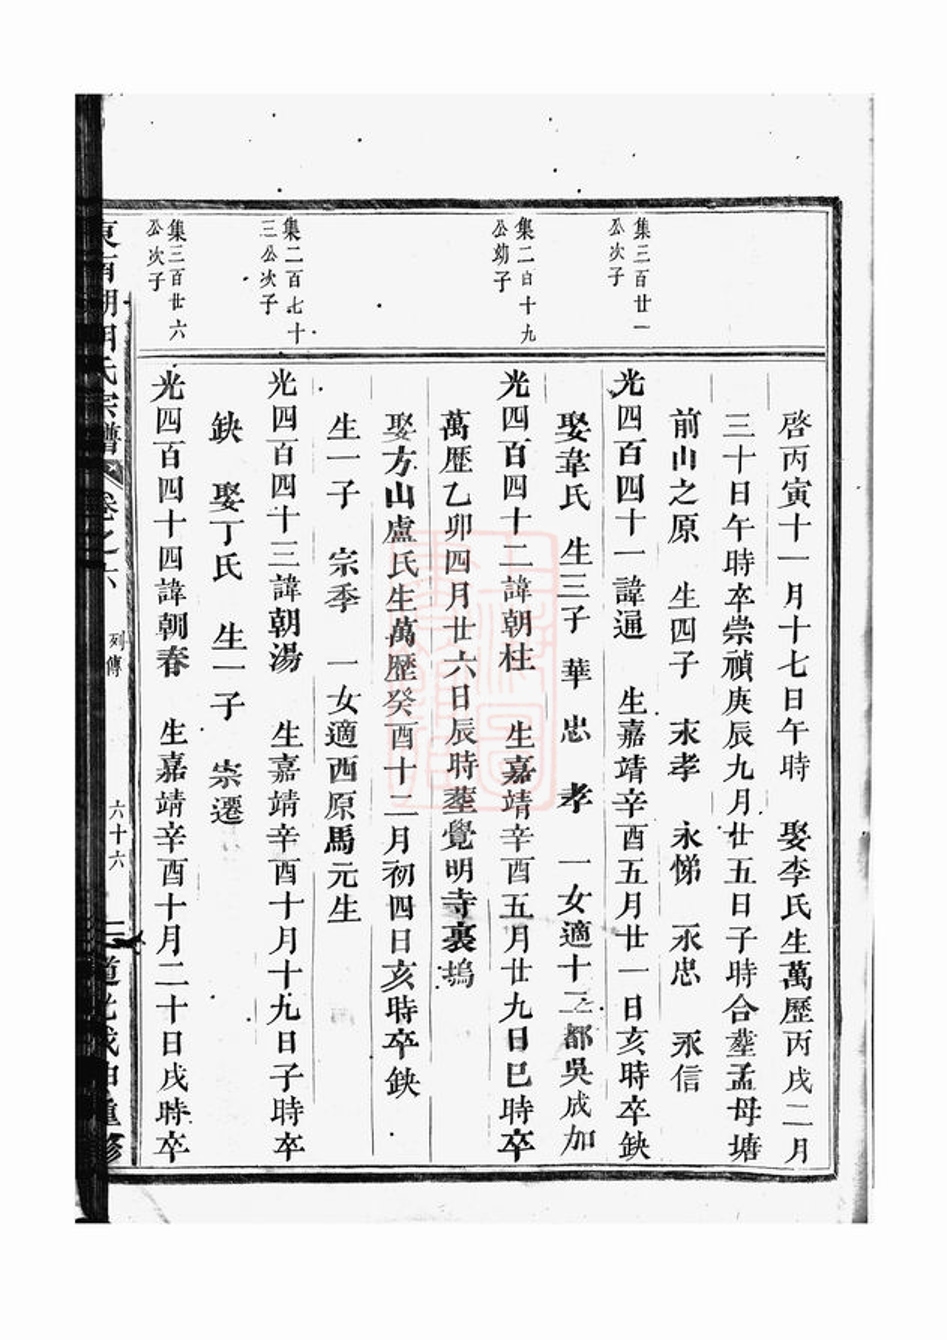 啓丙寅十一月十七日午時 娶李氏生萬歷丙戌二月
三十日午時卒崇禎庚辰九月廿五日子時合塟孟母塘
前山之原 生四子 永孝 永悌 永忠 永信
集三百廿一
公次子
光四百四十一諱通 生嘉靖辛酉五月廿一日亥時卒缺
娶韋氏 生三子 華 忠 孝 一女適十三都吳成加
集二百十九
公幼子
光四百四十二諱朝柱 生嘉靖辛酉五月廿九日巳時卒
萬歷乙卯四月廿六日辰時塟覺明寺裏塢
娶方山盧氏生萬歷癸酉十二月初四日亥時卒缺
生一子 宗季 一女適西原馬元生
集二百七十
三公次子
光四百四十三諱朝湯 生嘉靖辛酉十月十九日子時卒
缺 娶丁氏 生一子 崇遷
集三百廿六
公次子
光四百四十四諱朝春 生嘉靖辛酉十月二十日戌時卒
氏宗譜 卷之六 列傳 六十六 道光戊申重修